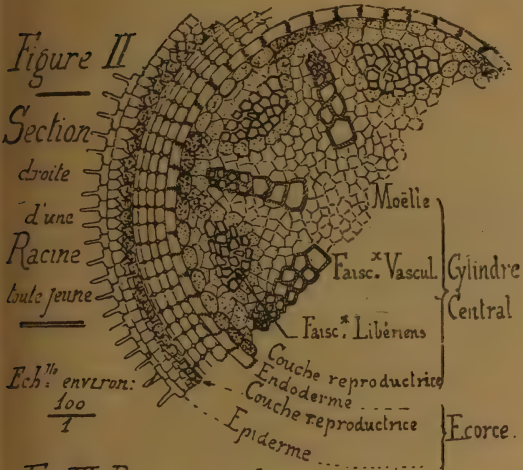 Figure II
Section
droite
d'une
Racine
toute jeune
Ech.lle environ:
100
1
Moëlle
Faisc.x Vascul.
Faisc.x Libériens
Couche reproductrice
Cylindre
Central
Endoderme
Couche reproductrice
Epiderme
Ecorce.